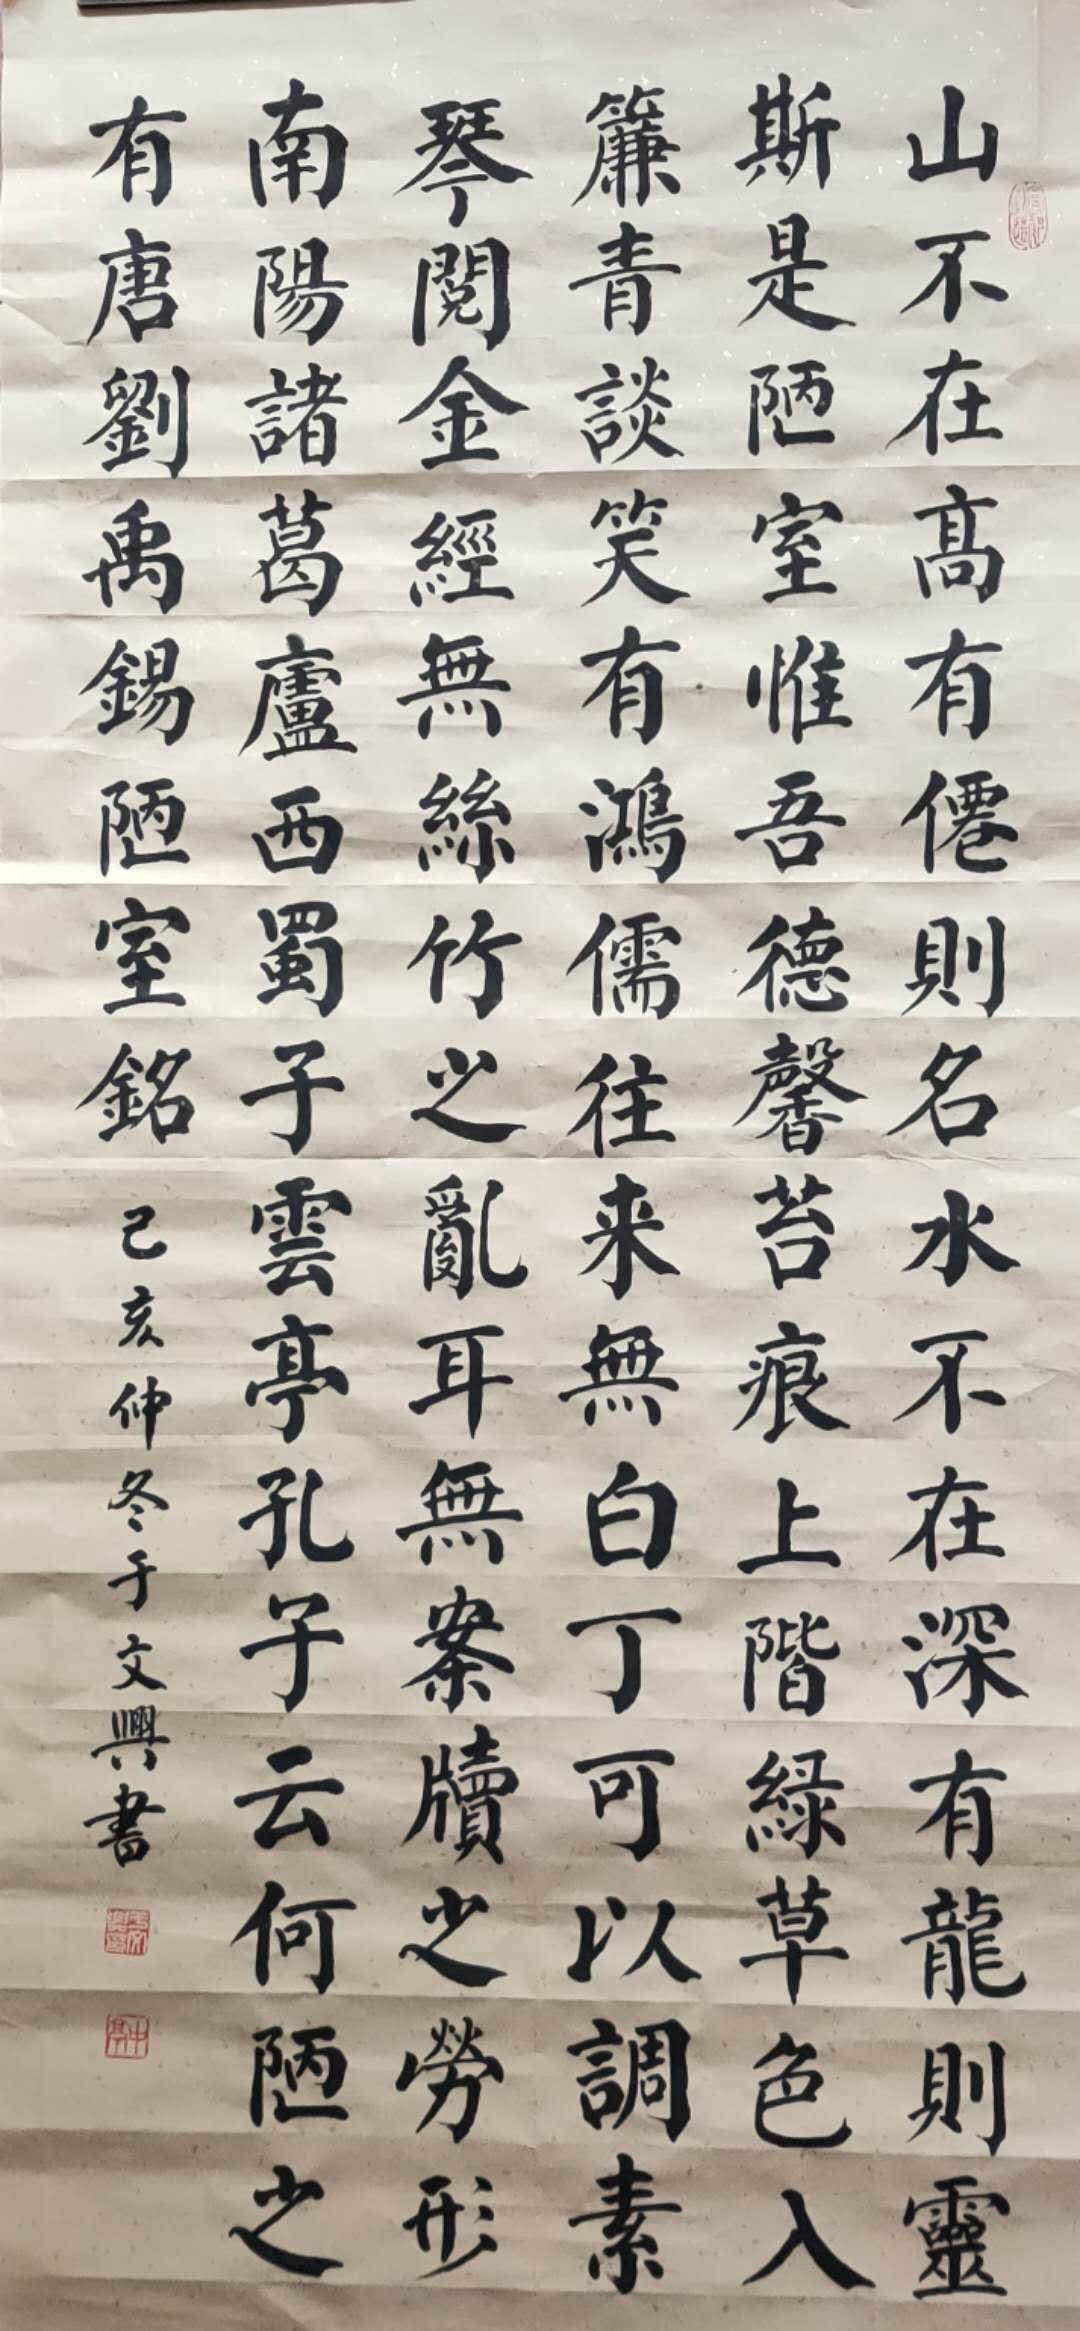 山不在高有僊則名水不在深有龍則靈
斯是陋室惟吾德馨苔痕上階緑草色入
簾青談笑有鴻儒往来無白丁可以調素
琴閱金經無絲竹之亂耳無案牘之勞形
南陽諸葛廬西蜀子雲亭孔子云何陋之
有唐劉禹錫陋室銘
己亥仲冬于文興書